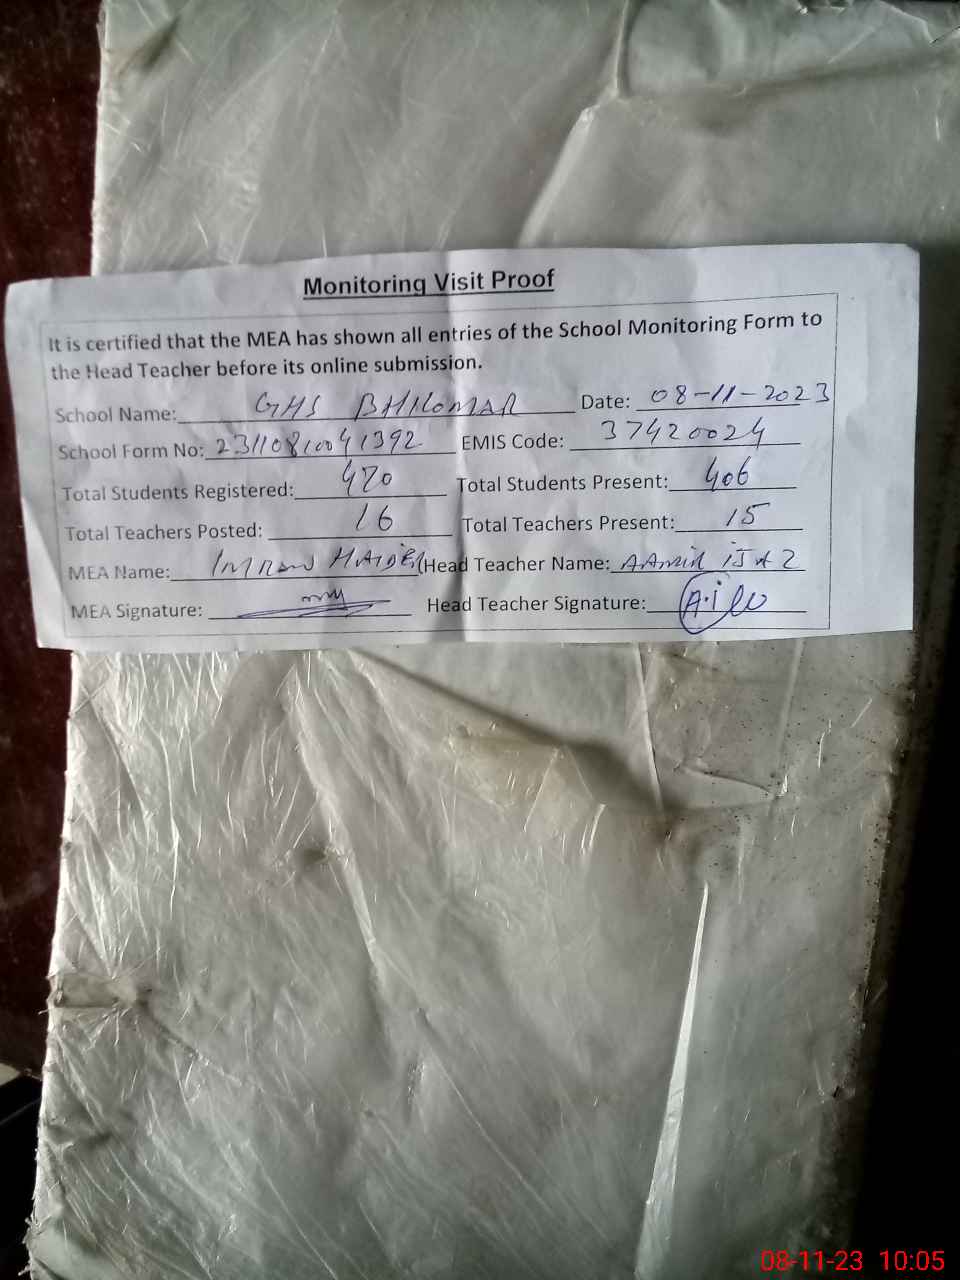 Monitoring Visit Proof
It is certified that the MEA has shown all entries of the School Monitoring Form to
the Head Teacher before its online submission.
School Name: GHS BHILOMAR Date: 08-11-2023
School Form No: 23110810041392 EMIS Code: 37420024
Total Students Registered: 470 Total Students Present: 406
Total Teachers Posted: 16 Total Teachers Present: 15
MEA Name: IMRAN HAIDER Head Teacher Name: AAMIR IJAZ
MEA Signature: Head Teacher Signature:
08-11-23 10:05